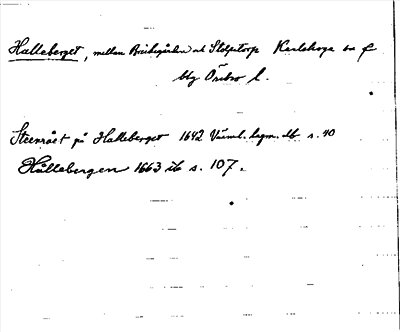 Halleberget, mellan Bricketorp och Stolpetorp Karlskoga sn o f
btg Örebro l.
Steenrået på Halleberget 1642 Värml. lagm. db s. 40
Hällebergen 1663 ib s. 107.